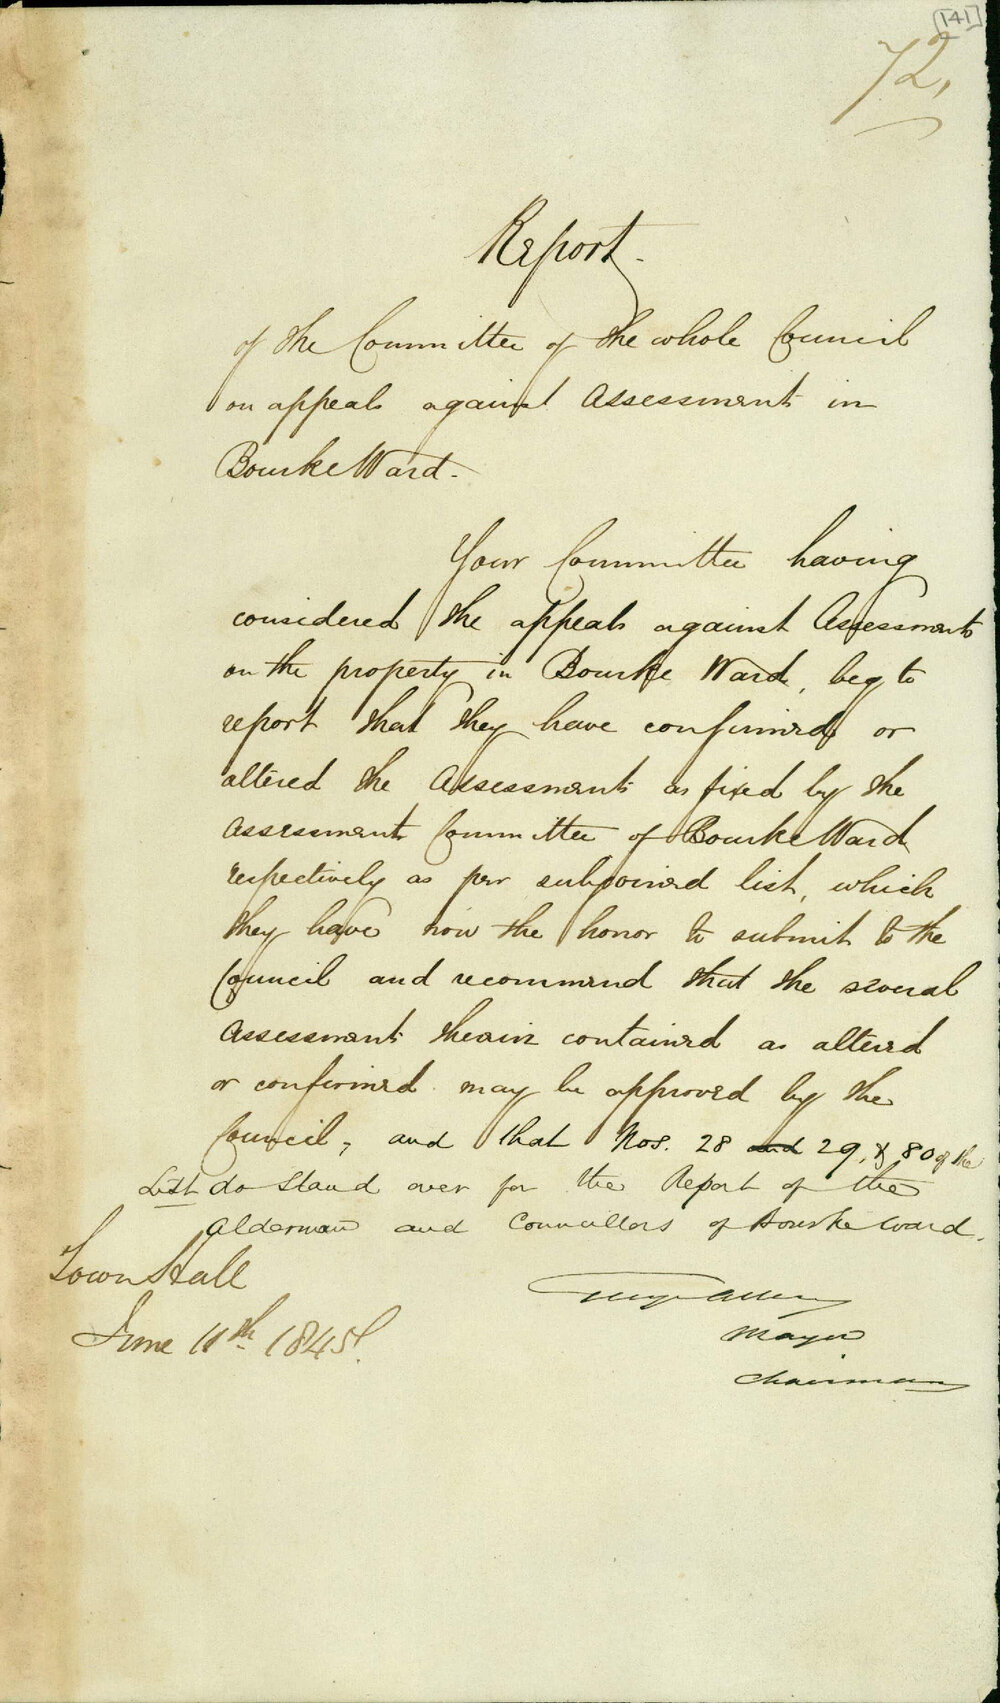 [141]
72,
Report.
of the Committee of the whole Council
on appeals against Assessments in
Bourke Ward.
Your Committee having
considered the appeals against Assessments
on the property in Bourke Ward, beg to
report that they have confirmed or
altered the Assessments as fixed by the
Assessment Committee of Bourke Ward
respectively as per subjoined list, which
they have now the honor to submit to the
Council and recommend that the several
Assessments therein contained as altered
or confirmed may be approved by the
Council, and that Nos. 28 and 29, & 80 of the
List do stand over for the Report of the
Alderman and Councillors of Bourke Ward.
Town Hall
June 11th. 1845.
Allen
Mayor
Chairman